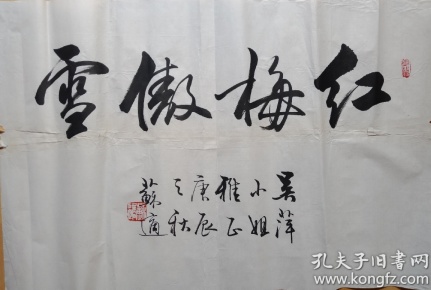 红梅傲雪
吴萍
小姐
雅正
庚辰
之秋
苏适
孔夫子旧书网
www.kongfz.com